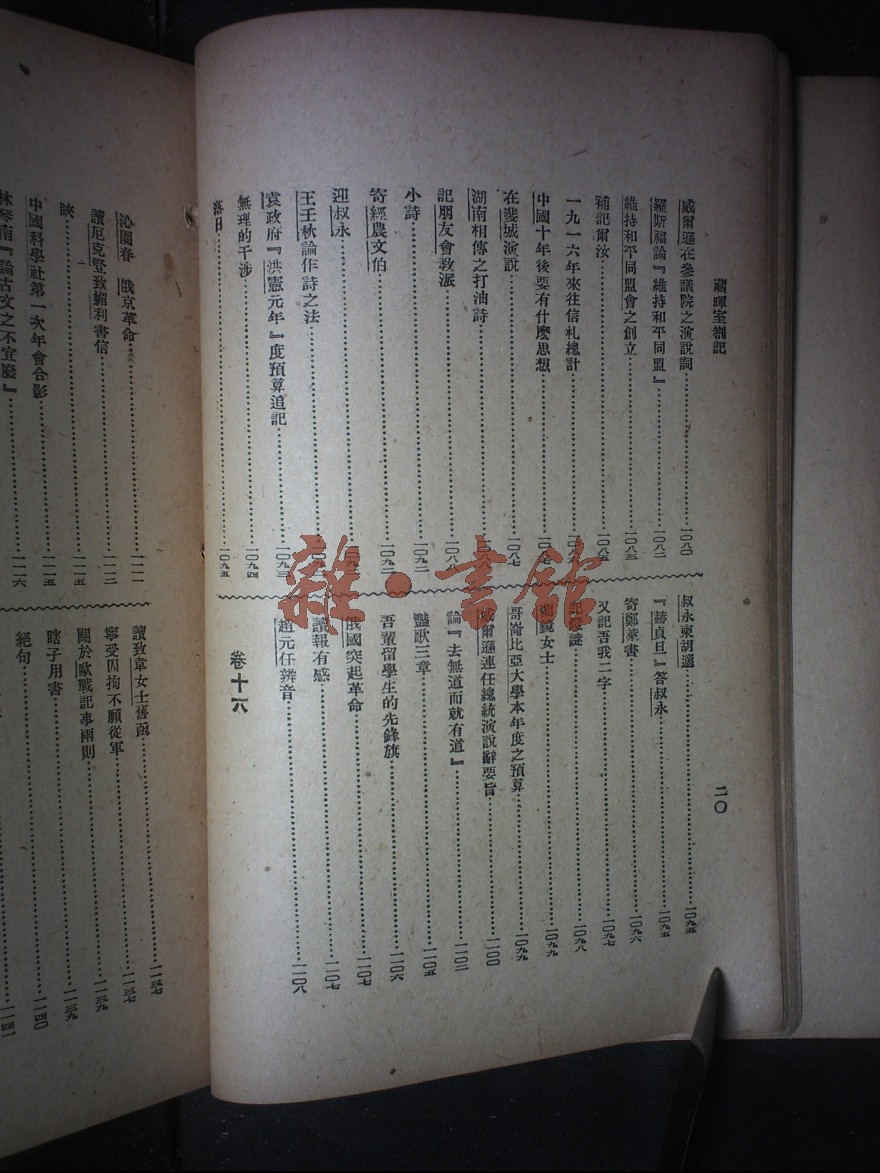 藏暉室劄記
二〇
威爾遜在參議院之演說詞……一〇八〇
羅斯福論『維持和平同盟』……一〇八二
維持和平同盟會之創立……一〇八三
補記爾汝……一〇八五
一九一六年來往信札總計……一〇八
中國十年後要有什麽思想……一〇八七
在斐城演說……一〇八七
湖南相傳之打油詩……一〇八八
記朋友會教派……一〇八八
小詩……一〇九二
寄經農文伯……一〇九二
迎叔永……一〇九二
王壬秋論作詩之法……一〇九三
袁政府『洪憲元年』度預算追記……一〇九三
無理的干涉……一〇九四
落日……一〇九五
叔永柬胡適……一〇九五
『赫貞旦』答叔永……一〇九五
寄鄭萊書……一〇九六
又記吾我二字……一〇九七
記燈謎……一〇九八
女士……一〇九九
哥崙比亞大學本年度之預算……一〇九九
威爾遜連任總統演說辭要旨……一一〇〇
論『去無道而就有道』……一一〇二
豔歌三章……一一〇五
吾輩留學生的先鋒旗……一一〇六
俄國突起革命……一一〇七
讀報有感……一一〇七
趙元任辨音……一一〇八
卷十六
沁園春 俄京革命……一一一一
讀厄克登致媚利書信……一一一二
映……一一一五
中國科學社第一次年會合影……一一一五
林琴南『論古文之不宜廢』……一一一六
讀致韋女士舊函……一一三七
寧受囚拘不願從軍……一一三七
關於歐戰記事兩則……一一三九
瞎子用書……一一四〇
絕句……一一四一
雜·書館